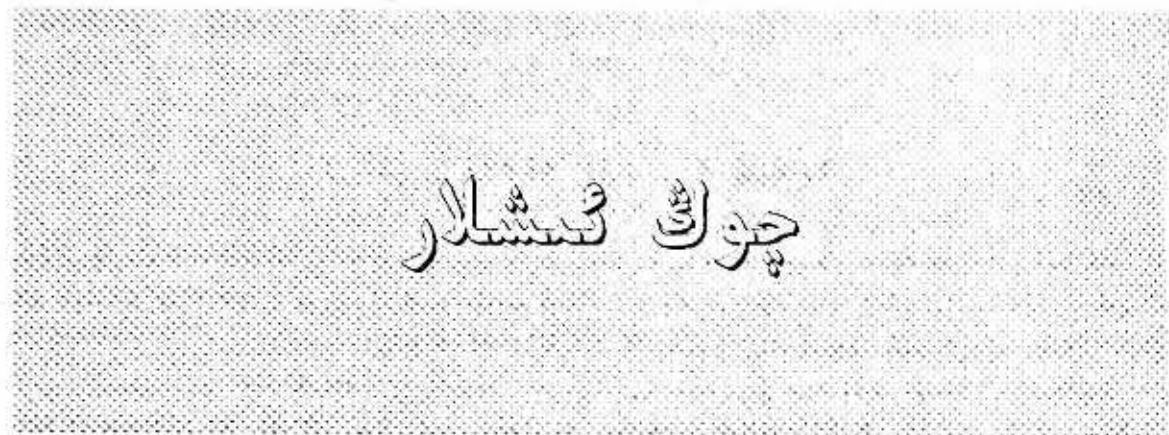 چوڭ ئىشلار